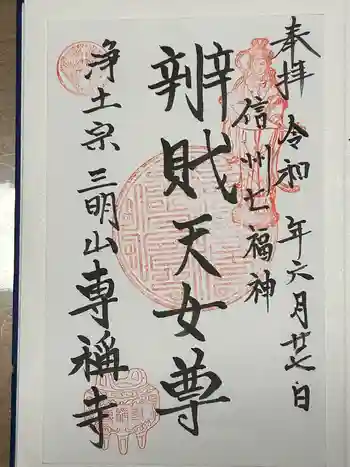 奉拝 令和 年六月廿七日
信州七福神
辨財天女尊
浄土宗 三明山 専称寺